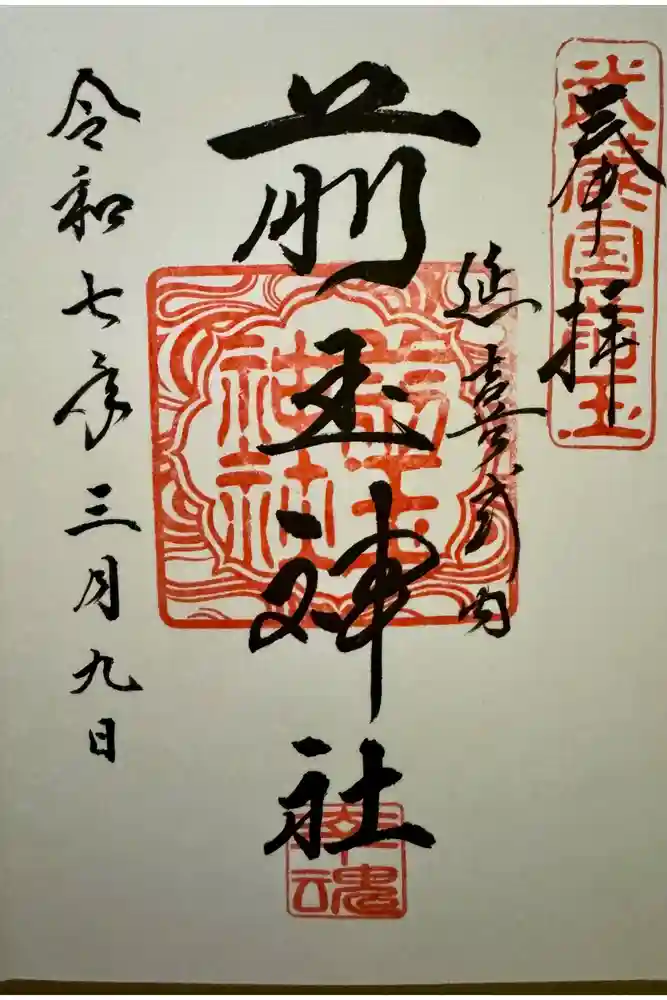 奉拝
武蔵国前玉
延喜式内
前玉神社
前玉神社
幸魂
令和七年三月九日